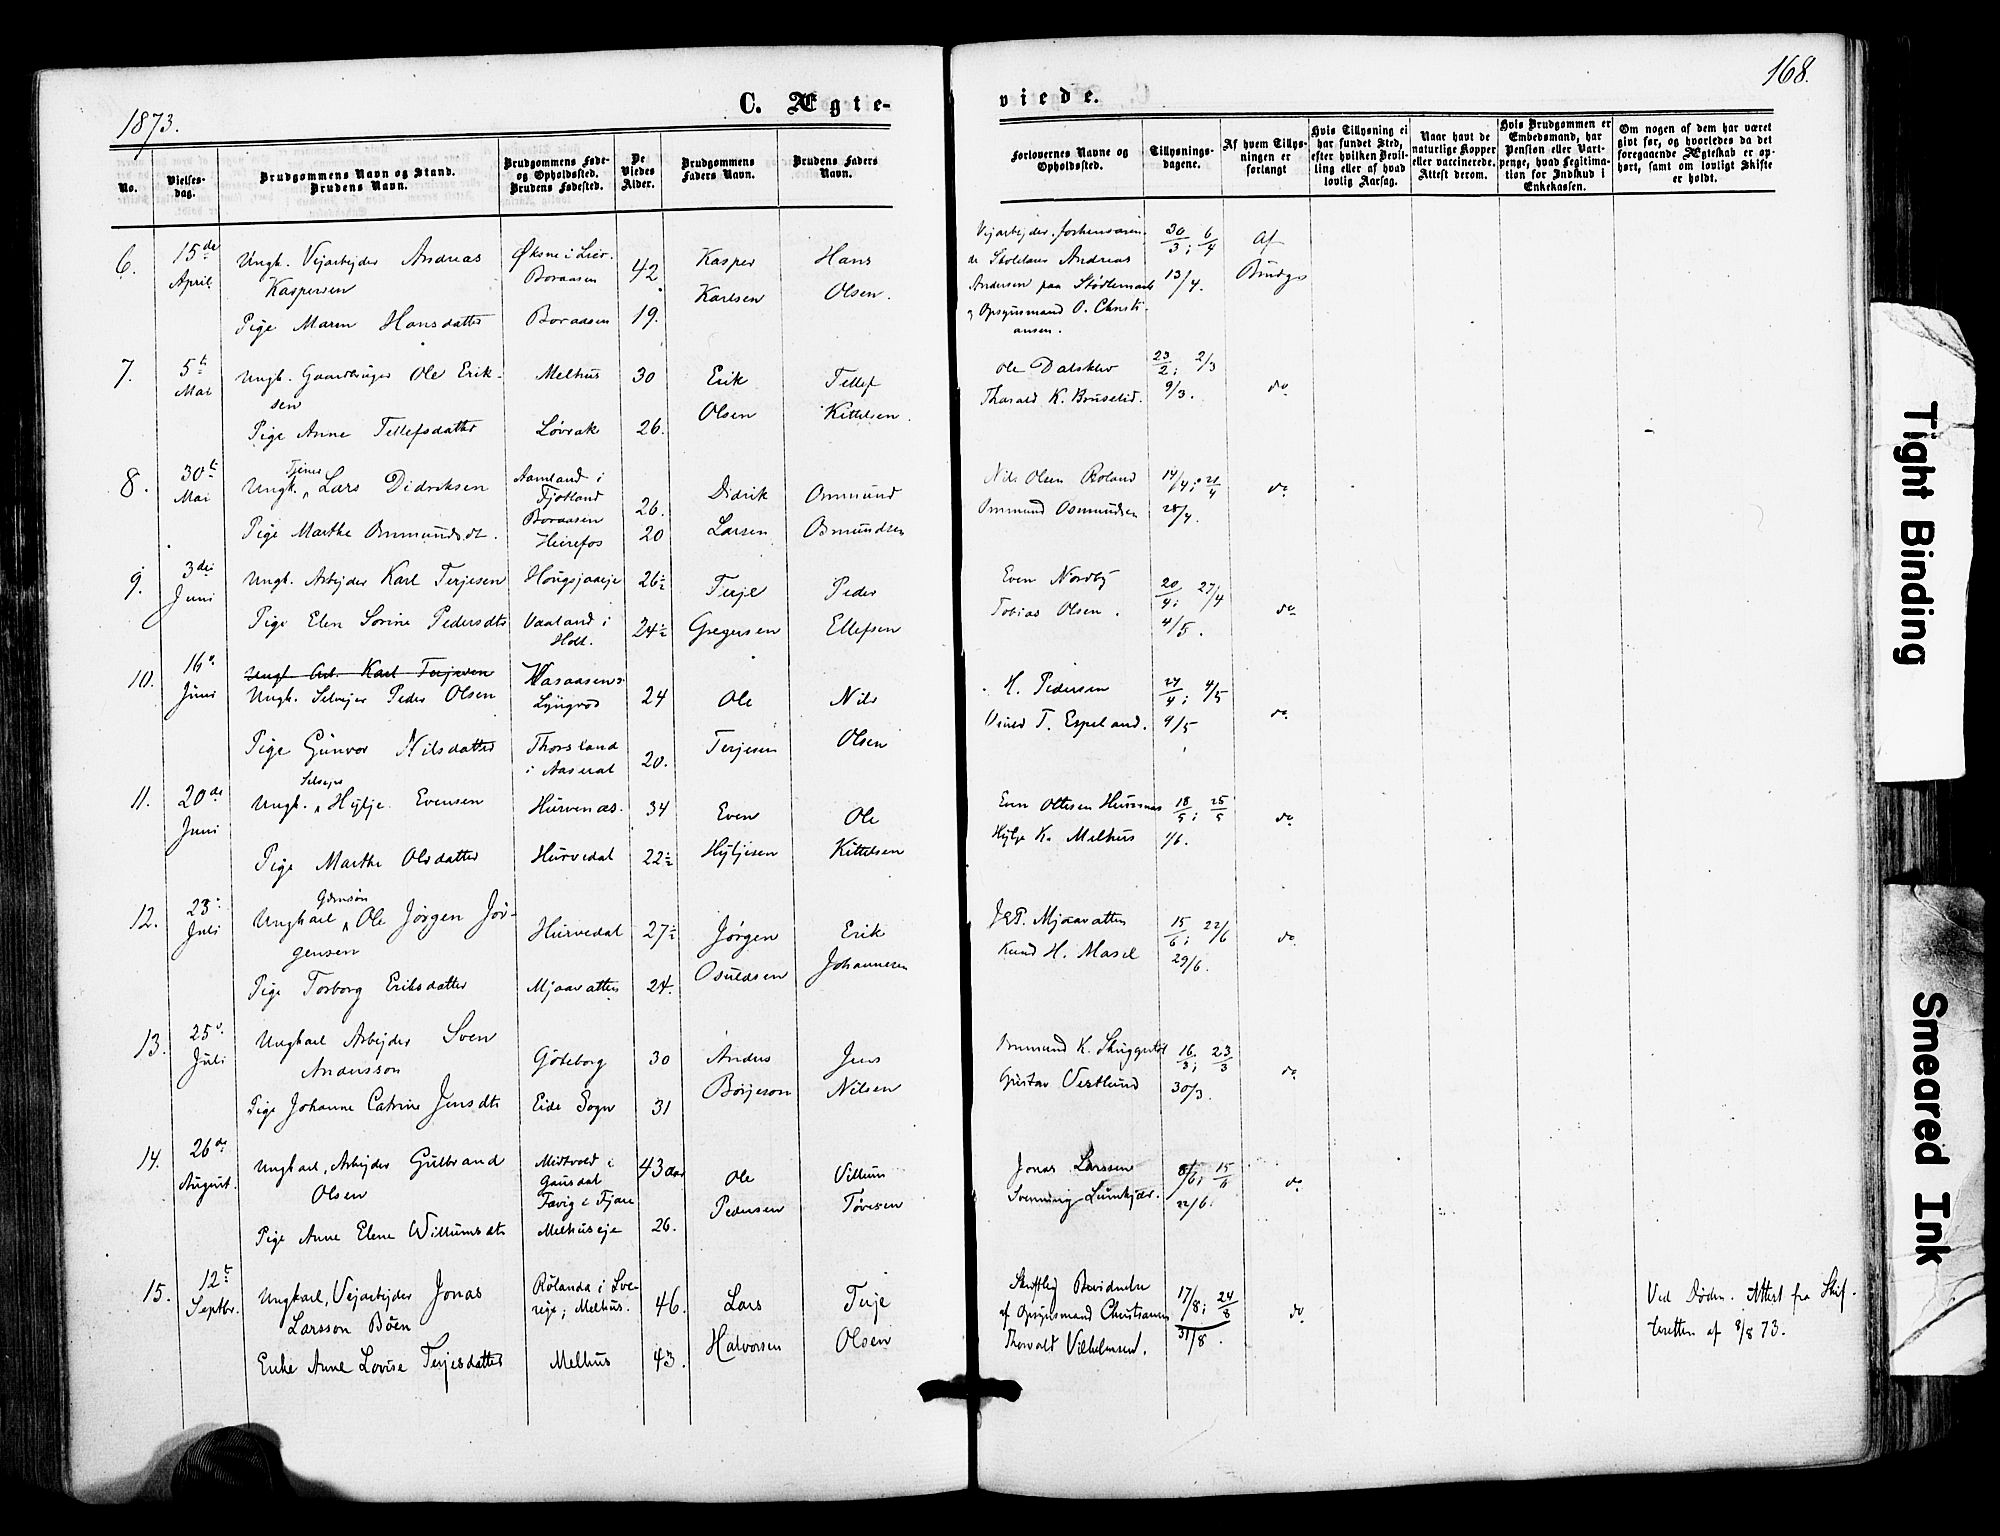 168.
1873.
C. Ægte-
viede.
No.
Vielses-
dag.
Brudgommens Navn og Stand.
Brudens Navn.
Brudgommens Føde-
og Opholdssted.
Brudens Fødested.
De
Viedes
Alder.
Brudgommens
Faders Navn.
Brudens Faders
Navn.
Forlovernes Navne og
Opholdssted.
Tillysnings-
dagene.
Af hvem Tillys-
ningen er
forlangt
Hvis Tillysning ei
har fundet Sted,
efter hvilken Bevil-
ling eller af hvad
lovlig Aarsag.
Naar havt de
naturlige Kopper
eller vaccinerede.
Attest derom.
Hvis Brudgommen er
Embedsmand, har
Pension eller Vart-
penge, hvad Legitima-
tion for Indskud i
Enkekassen.
Om nogen af dem har været
givt før, og hvorledes da det
foregaaende Ægteskab er op-
hørt, samt om lovligt Skifte
er holdt.
6. 15de April Ungk. Vejarbejder Andreas
Kaspersen
Øksne i Lier
Boraasen 42 Kasper
Karlsen Hans
Olsen.
Pige Maren Hansdatter Boraasen 19.
Vejarbejder
Skolelærer Andreas
Andersen paa
Opsynsmand O. Christi-
ansen.
30/3; 6/4
13/4.
Af
Brudg.
7. 5t Mai Ungk. Gaardbruger Ole Erik-
sen Melhus 30 Erik
Olsen Tellef
Kittelsen.
Pige Anne Tellefsdatter Løvrak 26.
Ole Dalsklev
Tharald K. Bruselid.
23/2; 2/3
9/3. do
8. 30t Mai Ungk. Tjener Lars Didriksen Aamland i
Fjotland
Boraasen 26. Didrik
Larsen Ommund
Osmundsen
Pige Marthe Ommundsdt. Heirefos 20
Nils Olsen Roland
Ommund Osmundsen
14/4; 21/4
28/4. do
9. 3die Juni Ungk. Arbejder Karl Terjesen Hougsjaaeje 26½ Terje
Gregersen Peder
Ellefsen
Pige Elen Sorine Pedersdtr Vaaland i
Holt. 24½
Even Nordby
Tobias Olsen.
20/4; 27/4
4/5. do
10. 16e Juni Ungk. Arb. Karl Terjesen
Ungk. Selvejer Peder Olsen
Lyngrod 24 Ole
Terjesen Nils
Olsen
Pige Gunvor Nilsdatter Thorsland
i Aaseral 20.
H. Pedersen
T. Espeland.
27/4; 4/5
9/5 do
11. 20de Juni Ungk. Selvejer Hylje Evensen Hurvenæs. 34 Even
Hyljesen Ole
Kittelsen
Pige Marthe Olsdatter Hurvedal 22½
Even Ottesen Hurvenæs
Hylje K. Melhus
18/5; 25/5
1/6. do
12. 23e Juli Ungkarl Gamsøn Ole Jørgen Jør-
gensen Hurvedal 27½ Jørgen
Osuldsen Erik
Johannesen
Pige Torborg Eriksdatter Mjaavatten 24.
Mjaavatten
Knud H. Mosel
15/6; 22/6
29/6. do
13. 25e Juli Ungkarl Arbejder Sven
Andersson Göteborg 30 Anders
Börjeson Jens
Nilsen
Pige Johanne Catrine Jensdtr Eide Sogn 31
Ommund K. Skuggestøl
Gustav Vestlund
16/3; 23/3
30/3. do
14. 26de August. Ungkarl, Arbejder Gulbrand
Olsen Midtvold i
Gausdal 43 aar Ole
Pedersen Villum
Tøvesen
Pige Anne Elene Willumsdtr
Melhuseje 26.
Jonas Larssen
Svenning Lunkjær.
8/6; 15/6
22/6. do
15. 12t Septbr. Ungkarl, Vejarbejder Jonas
Larsson Böen Rölanda i Sve-
rige; Melhus. 46. Lars
Halvorsen Terje
Olsen
Enke Anne Lovise Terjesdatter Melhus 43.
Skriftlig Bevidnelse
af Opsynsmand Christiansen
Thorvald Vilhelmsen.
17/8; 24/8
31/8. do
Ved Døden. Attest fra Skif-
teretten af 8/8 73.
Tight Binding
Smeared Ink